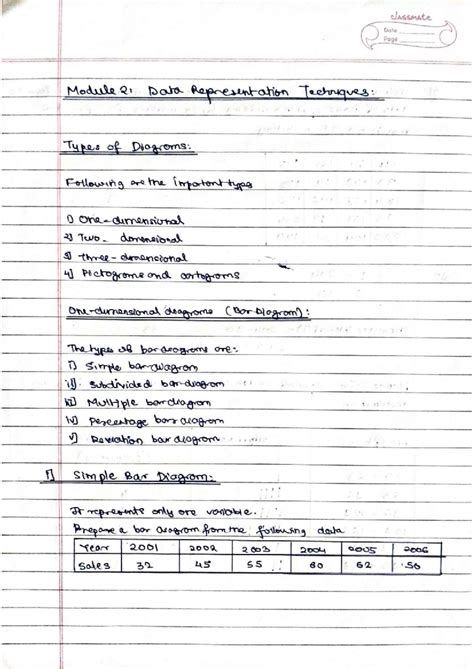 classmate
Date
Page
Module 2: Data Representation Techniques:
Types of Diagrams:
Following are the impotant types
1) One-dimensional
2) Two- dimensional
3) three-dimensional
4) Pictograms and cartograms
One-dimensional diagrams (Bar Diagram):
The types of bar diagrams are:
i) Simple bar diagram
ii) Subdivided bar diagram
iii) Multiple bar diagram
iv) Percentage bar diagram
v) Deviation bar diagram
1) Simple Bar Diagram:
It represents only one variable.
Prepare a bar diagram from the following data
Year 2001 2002 2003 2004 2005 2006
Sales 32 45 55 60 62 50